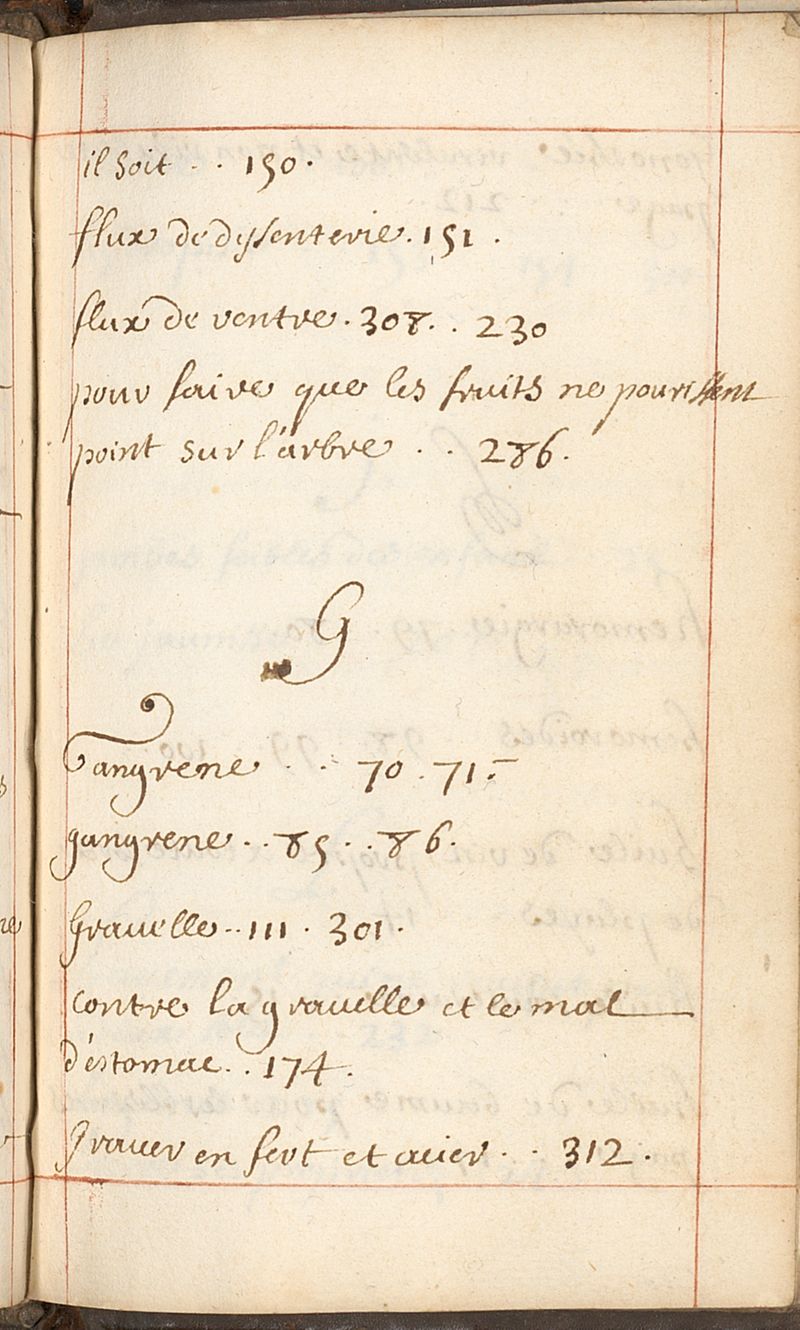 il soit . . 150.
flux de dysenterie. 151.
flux de ventre. 308. . 230
pour faire que les fruits ne pourissent
point sur l'arbre . . 286.
G
Gangrene . . 70. 71.
gangrene. . 85. . 86.
Gravelle. . 111. 301.
contre la gravelle et le mal
d'estomac. . 174.
Graver en fert et acier. . 312.